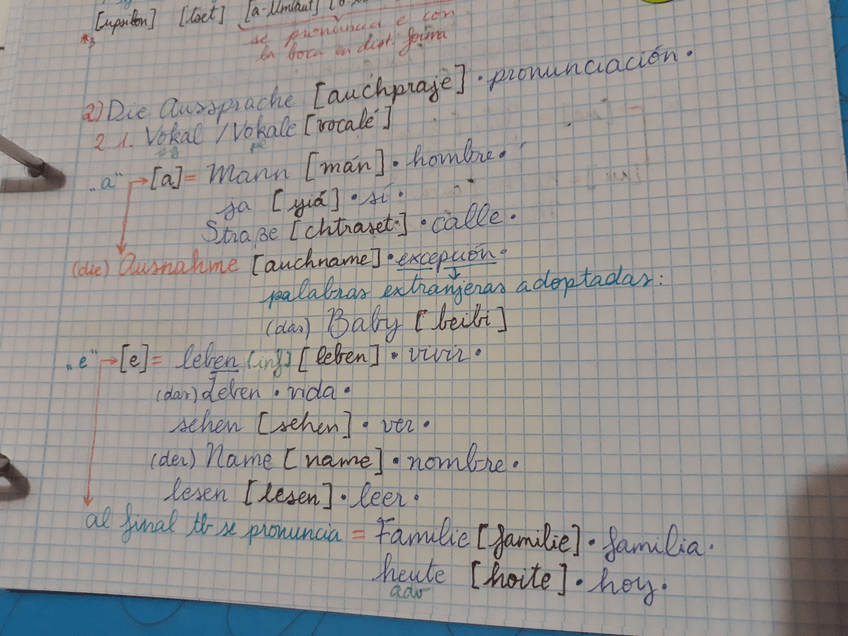 [upsilon] [tset] [a-Umlaut]
*3 se pronuncia e con
la boca en dist. forma
2) Die Aussprache [auchpraje] · pronunciación ·
2.1. Vokal / Vokale [vocalé]
"a" → [a] = Mann [mán] · hombre ·
ja [yiá] · sí ·
Straße [chtraset] · calle ·
(die) Ausnahme [auchname] · excepción ·
palabras extranjeras adoptadas:
(das) Baby [beibi]
"e" → [e] = leben (inf) [leben] · vivir ·
(das) Leben · vida ·
sehen [sehen] · ver ·
(der) Name [name] · nombre ·
lesen [lesen] · leer ·
al final tb se pronuncia = Familie [familie] · familia ·
heute [hoite] · hoy ·
adv